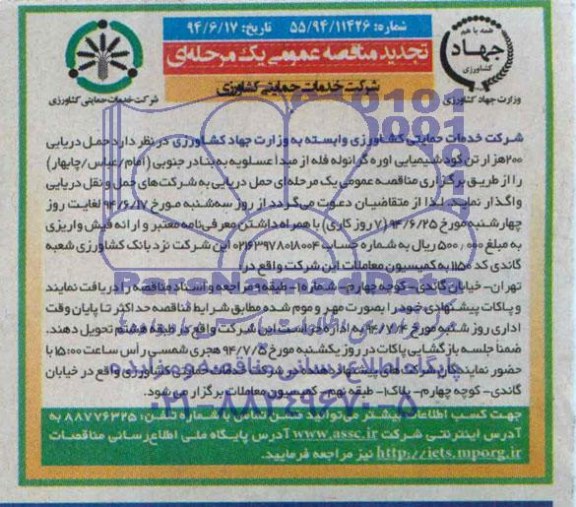 شماره: ۵۵/۹۴/۱۱۴۲۶ تاریخ: ۹۴/۶/۱۷
تجدید مناقصه عمومی یک مرحله‌ای
شرکت خدمات حمایتی کشاورزی
همه با هم
جهاد
کشاورزی
وزارت جهاد کشاورزی
شرکت خدمات حمایتی کشاورزی
شرکت خدمات حمایتی کشاورزی وابسته به وزارت جهاد کشاورزی در نظر دارد حمل دریایی
۲۰۰هزار تن کود شیمیایی اوره گرانوله فله از مبدأ عسلویه به بنادر جنوبی (امام/عباس/چابهار)
را از طریق برگزاری مناقصه عمومی یک مرحله‌ای حمل دریایی به شرکت‌های حمل و نقل دریایی
واگذار نماید. لذا از متقاضیان دعوت می‌گردد از روز سه‌شنبه مورخ ۹۴/۶/۱۷ لغایت روز
چهارشنبه مورخ ۹۴/۶/۲۵ (۷ روز کاری) با همراه داشتن معرفی‌نامه معتبر و ارائه فیش واریزی
به مبلغ ۵۰۰,۰۰۰ ریال به شماره حساب ۰۲۱۶۳۹۷۸۰۱۸۰۰۴ این شرکت نزد بانک کشاورزی شعبه
گاندی کد ۱۱۵۰ به کمیسیون معاملات این شرکت واقع در:
تهران- خیابان گاندی- کوچه چهارم- شماره ۱- طبقه ۹ مراجعه و اسناد مناقصه را دریافت نمایند
و پاکات پیشنهادی خود را بصورت مهر و موم شده مطابق شرایط مناقصه حداکثر تا پایان وقت
اداری روز شنبه مورخ ۹۴/۷/۴ به اداره حراست این شرکت واقع در طبقه هشتم تحویل دهند.
ضمناً جلسه بازگشایی پاکات در روز یکشنبه مورخ ۹۴/۷/۵ هجری شمسی رأس ساعت ۱۵:۰۰ با
حضور نمایندگان شرکت‌های پیشنهاد دهنده در شرکت خدمات حمایتی کشاورزی واقع در خیابان
گاندی- کوچه چهارم- پلاک ۱- طبقه نهم- کمیسیون معاملات برگزار می‌شود.
جهت کسب اطلاعات بیشتر می‌توانید ضمن تماس با شماره تلفن: ۸۸۷۷۶۳۲۵ به
آدرس اینترنتی شرکت www.assc.ir آدرس پایگاه ملی اطلاع‌رسانی مناقصات
http://iets.mporg.ir نیز مراجعه فرمایید.
ParsNamadData
۰۲۱-۸۸۳۴۹۶۷۰-۵